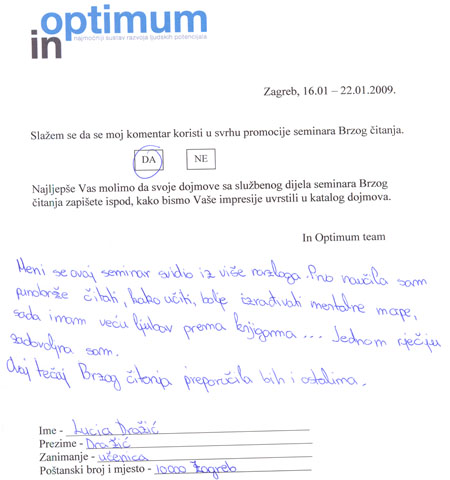 optimum
in
najmoćniji sustav razvoja ljudskih potencijala
Zagreb, 16.01 – 22.01.2009.
Slažem se da se moj komentar koristi u svrhu promocije seminara Brzog čitanja.
DA NE
Najljepše Vas molimo da svoje dojmove sa službenog dijela seminara Brzog
čitanja zapišete ispod, kako bismo Vaše impresije uvrstili u katalog dojmova.
In Optimum team
Meni se ovaj seminar svidio iz više razloga. Prvo naučila sam
puno brže čitati, kako učiti, bolje izrađivati mentalne mape,
sada imam veću ljubav prema knjigama ... Jednom rječju
zadovoljna sam.
Ovaj tečaj Brzog čitanja preporučila bih i ostalima.
Ime - Lucia Dražić
Prezime - Dražić
Zanimanje - učenica
Poštanski broj i mjesto - 10000 Zagreb